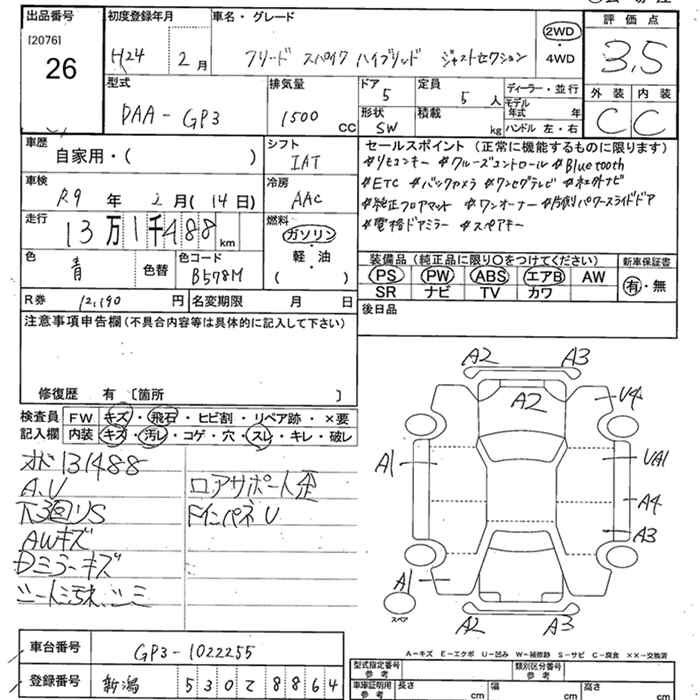 出品番号 [20761] 26
初度登録年月 H24 2月
車名・グレード フリード スパイク ハイブリッド ジャストセクション
2WD
4WD
評価点 3,5
型式 DAA-GP3
排気量 1500 CC
ドア 5
定員 5人
形状 SW
積載 kg
ディーラー・並行
モデル年式 年
ハンドル 左・右
外装 C
内装 C
車歴 自家用・( )
シフト IAT
車検 R9年 2月(14日)
冷房 AAC
走行 13万1千488 km
燃料 ガソリン
軽・油
( )
色 青 色替
色コード B578M
R券 12,190円
名変期限 月 日
セールスポイント(正常に機能するものに限ります)
#リモコンキー #クルーズコントロール #Bluetooth
#ETC #バックカメラ #ワンセグテレビ #社外ナビ
#純正フロアマット #ワンオーナー #片側パワースライドドア
#電格ドアミラー #スペアキー
装備品(純正品に限り○をつけてください)
新車保証書
PS PW ABS エアB AW
SR ナビ TV カワ
有・無
後日品
注意事項申告欄(不具合内容等は具体的に記入して下さい)
修復歴 有 〔箇所 〕
検査員記入欄
FW キズ・飛石・ヒビ割・リペア跡・×要
内装 キズ・汚レ・コゲ・穴・スレ・キレ・破レ
オド131488
A.U
下回りS
AWキズ
Dミラーキズ
シート汚れ、シミ
ロアサポート歪
Fインパネ U
A2 A3
A2 U4
A1 UA1
A4
A3
A1
スペア
A2 A3
A-キズ E-エクボ U-凹み W-補修跡 S-サビ C-腐食 ××-交換済
車台番号 GP3-1022255
登録番号 新潟 530 て 8864
型式指定番号 参考
類別区分番号 参考
車庫証明用 参考 長さ cm 幅 cm 高さ cm